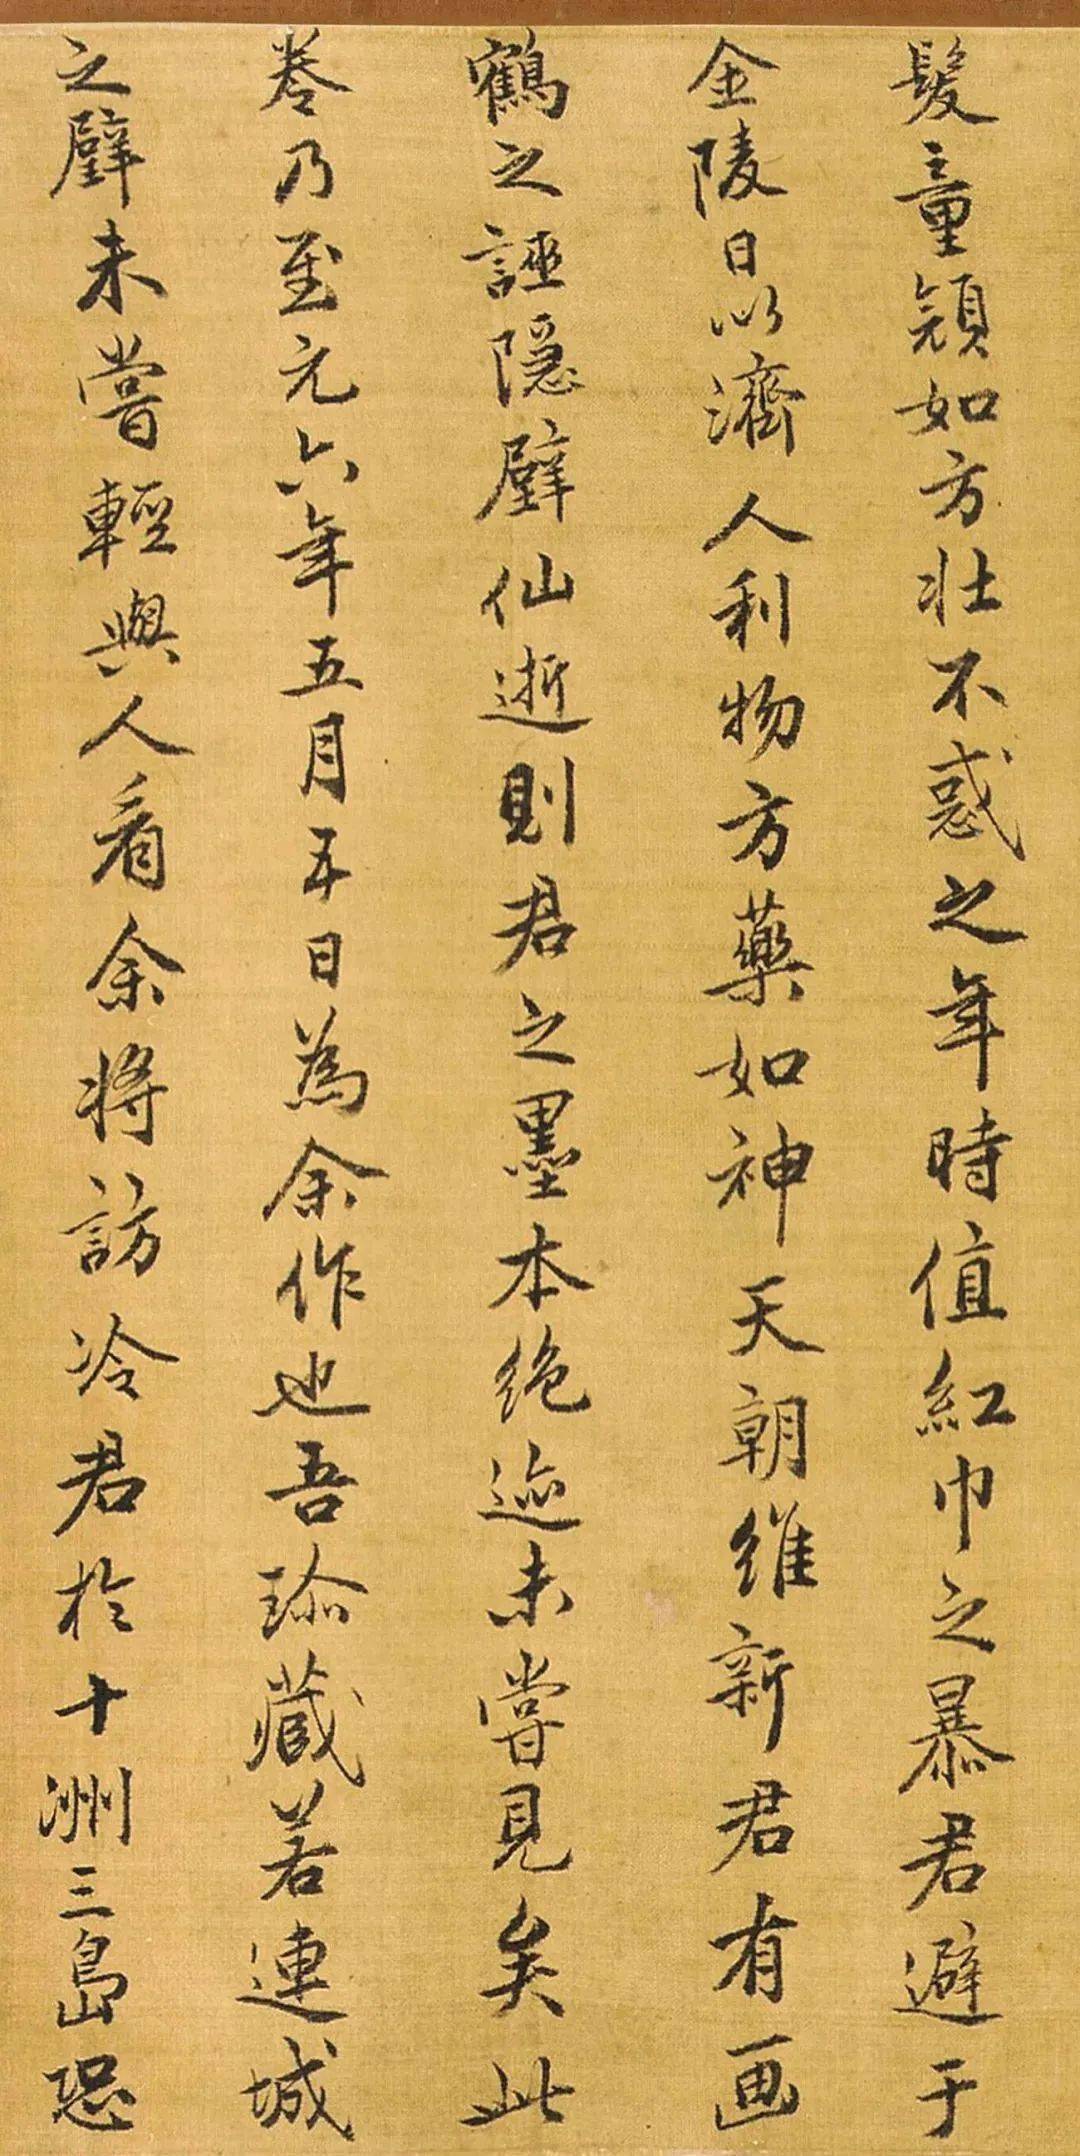 髮童顏如方壯不惑之年時值紅巾之暴君避于
金陵日以濟人利物方藥如神天朝維新君有画
鶴之誣隱壁仙逝則君之墨本絶迹未嘗見矣此
卷乃至元六年五月五日為余作也吾珍藏若連城
之璧未嘗輕與人看余將訪冷君於十洲三島恐